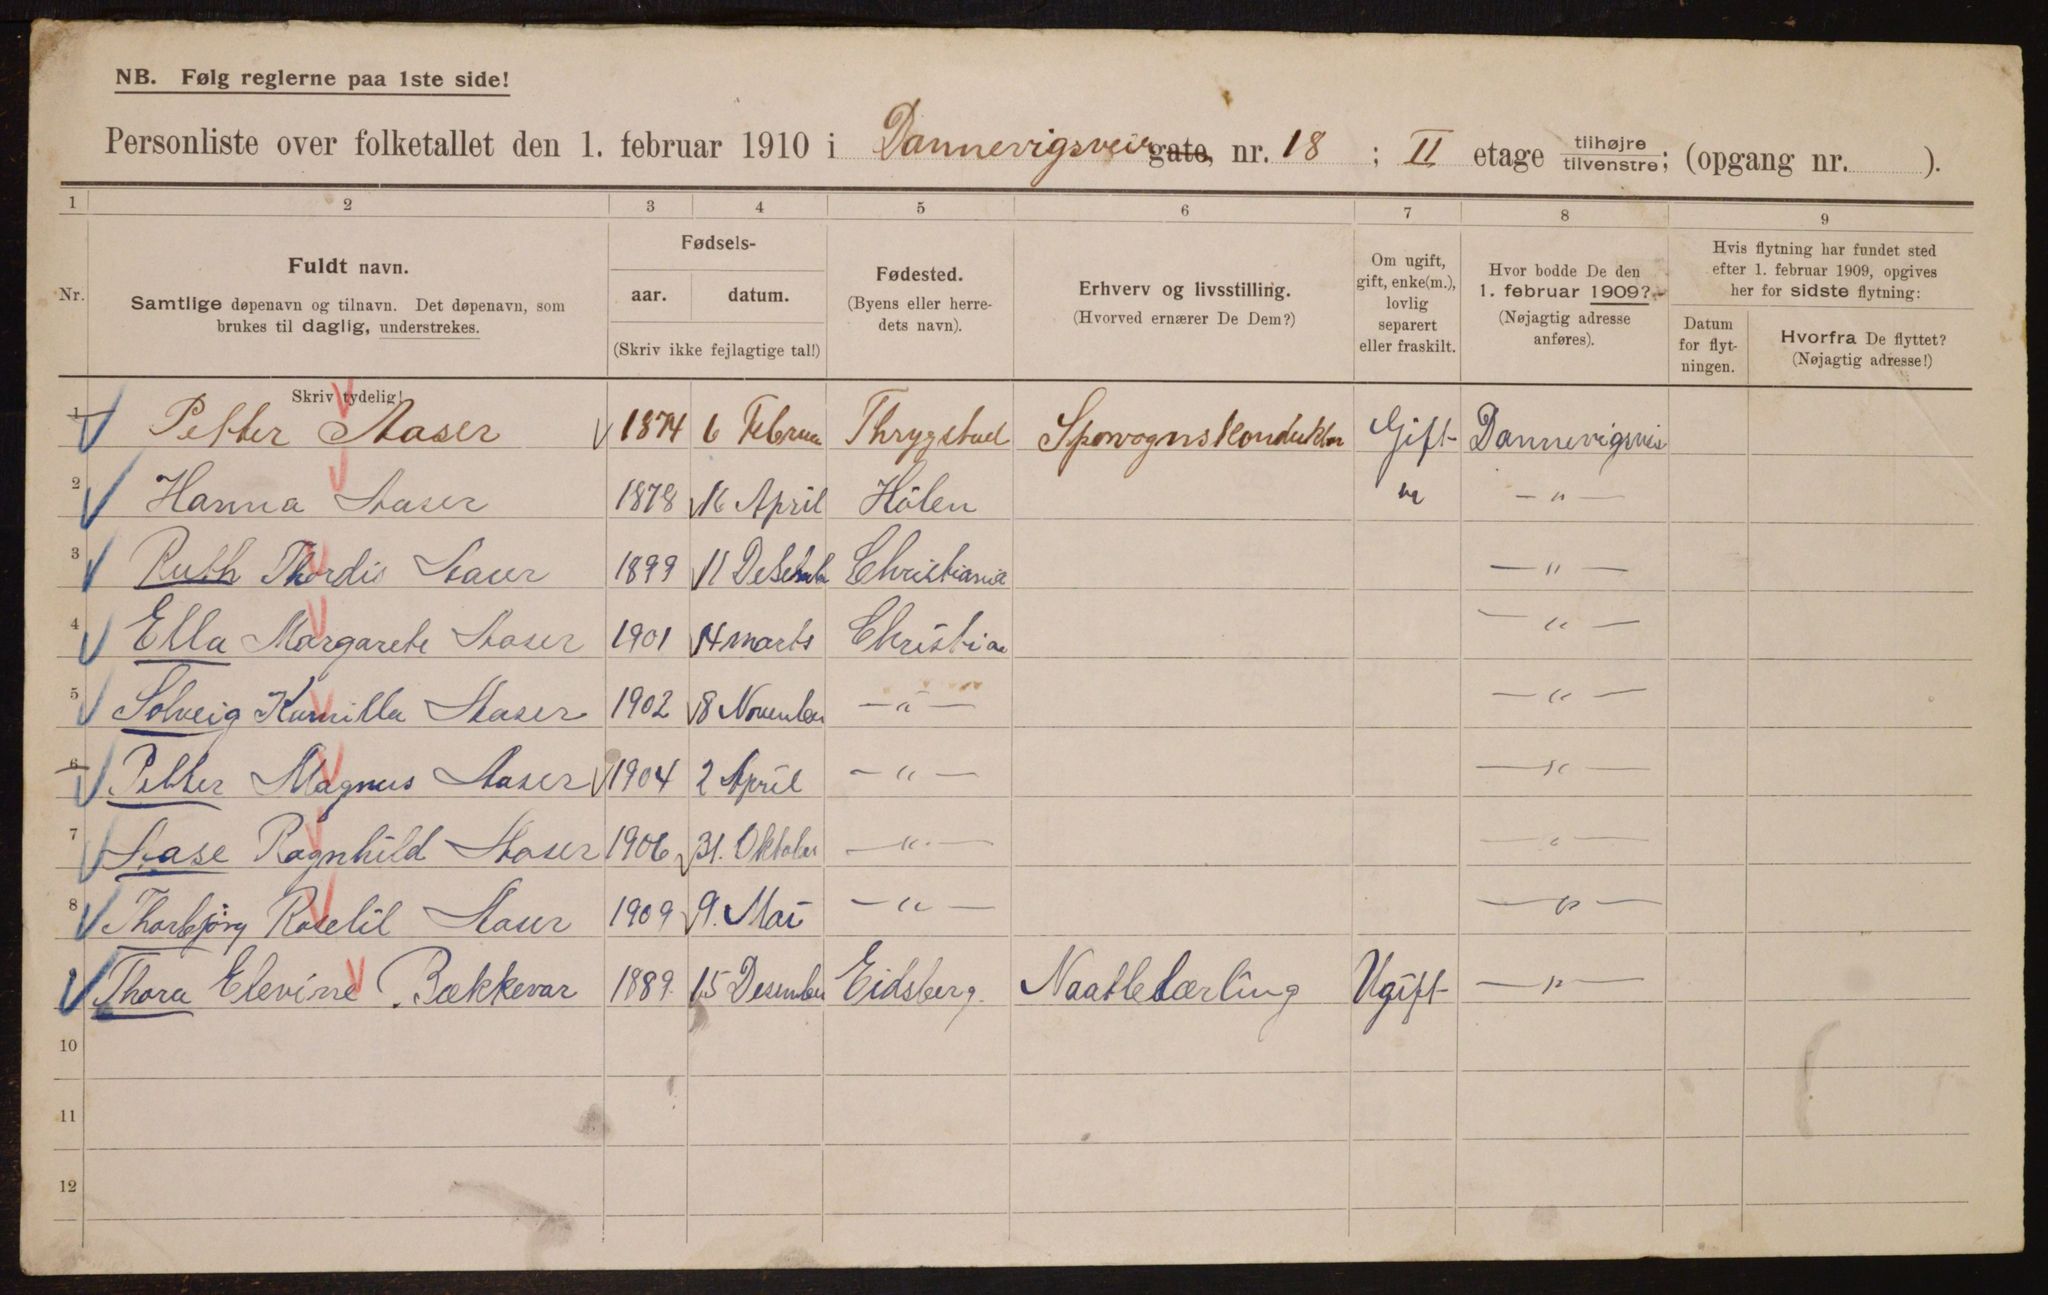 NB. Følg reglerne paa 1ste side!
Personliste over folketallet den 1. februar 1910 i Dannevigsveien gate, nr. 18 ; II etage tilhøjre tilvenstre; (opgang nr. ).
1 2 3 4 5 6 7 8 9
Nr.
Fuldt navn.
Samtlige døpenavn og tilnavn. Det døpenavn, som
brukes til daglig, understrekes.
Skriv tydelig!
Fødsels-
aar. datum.
(Skriv ikke fejlagtige tal!)
Fødested.
(Byens eller herre-
dets navn).
Erhverv og livsstilling.
(Hvorved ernærer De Dem?)
Om ugift,
gift, enke(m.),
lovlig
separert
eller fraskilt.
Hvor bodde De den
1. februar 1909?
(Nøjagtig adresse
anføres).
Hvis flytning har fundet sted
efter 1. februar 1909, opgives
her for sidste flytning:
Datum
for flyt-
ningen.
Hvorfra De flyttet?
(Nøjagtig adresse!)
1 Petter Aaser 1874 6 Februa Thrygstad Sporvognskonduktør Gift Dannevigsvei
2 Hanna Aaser 1878 16 April Hölen " — " —
3 Ruth Thordis Aaser 1899 11 Christiania — " —
4 Ella Margarete Aaser 1901 14 marts Christia — " —
5 Solveig Kamilla Aaser 1902 8 November — " — — " —
6 Petter Magnus Aaser 1904 2 April — " — — " —
7 Aase Ragnhild Aaser 1906 31. Oktober — " — — " —
8 Thorbjörg Roselil Aaser 1909 9. Mai — " — — " —
9 Thora Elevine Bækkevar 1889. 15 Desember Eidsberg. Naatlelærling Ugift — " —
10
11
12